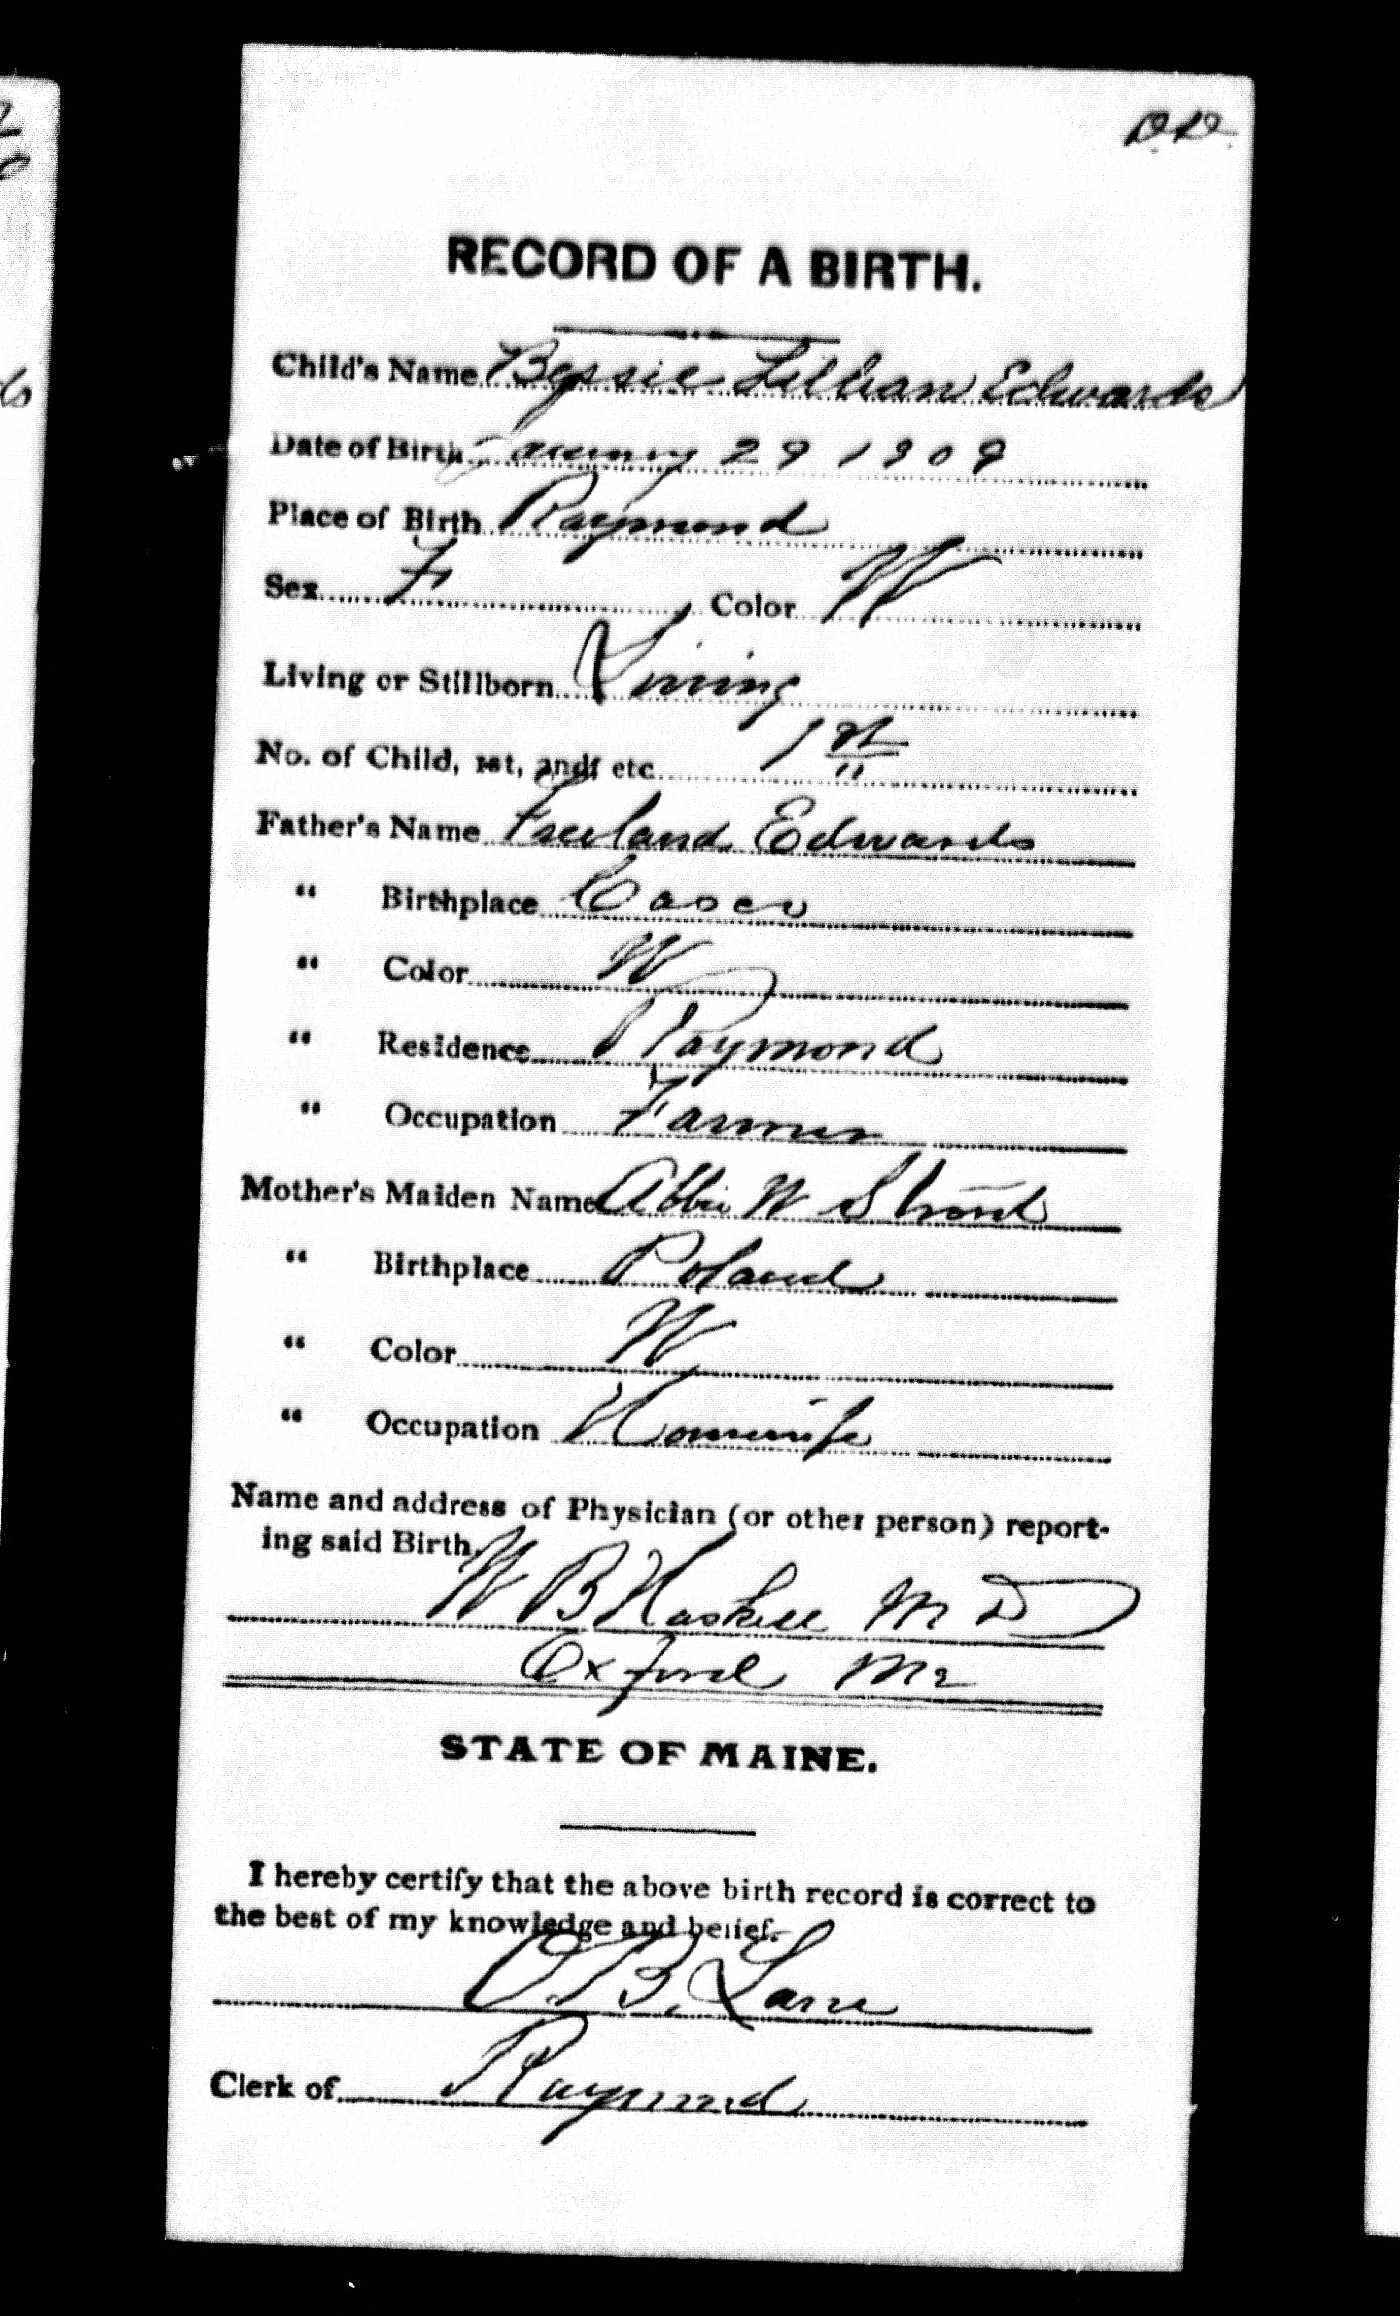 D.D.
RECORD OF A BIRTH.
Child's Name Bessie Lillian Edwards
Date of Birth January 29 1909
Place of Birth Raymond
Sex F Color W
Living or Stillborn Living
No. of Child, 1st, 2nd, etc 1st
Father's Name Freeland Edwards
" Birthplace Casco
" Color W
" Residence Raymond
" Occupation Farmer
Mother's Maiden Name Abbie W Strout
" Birthplace Poland
" Color W
" Occupation Housewife
Name and address of Physician (or other person) report-
ing said Birth.
W B Haskell M D
Oxford Me
STATE OF MAINE.
I hereby certify that the above birth record is correct to
the best of my knowledge and belief.
O. B. Lane
Clerk of Raymond